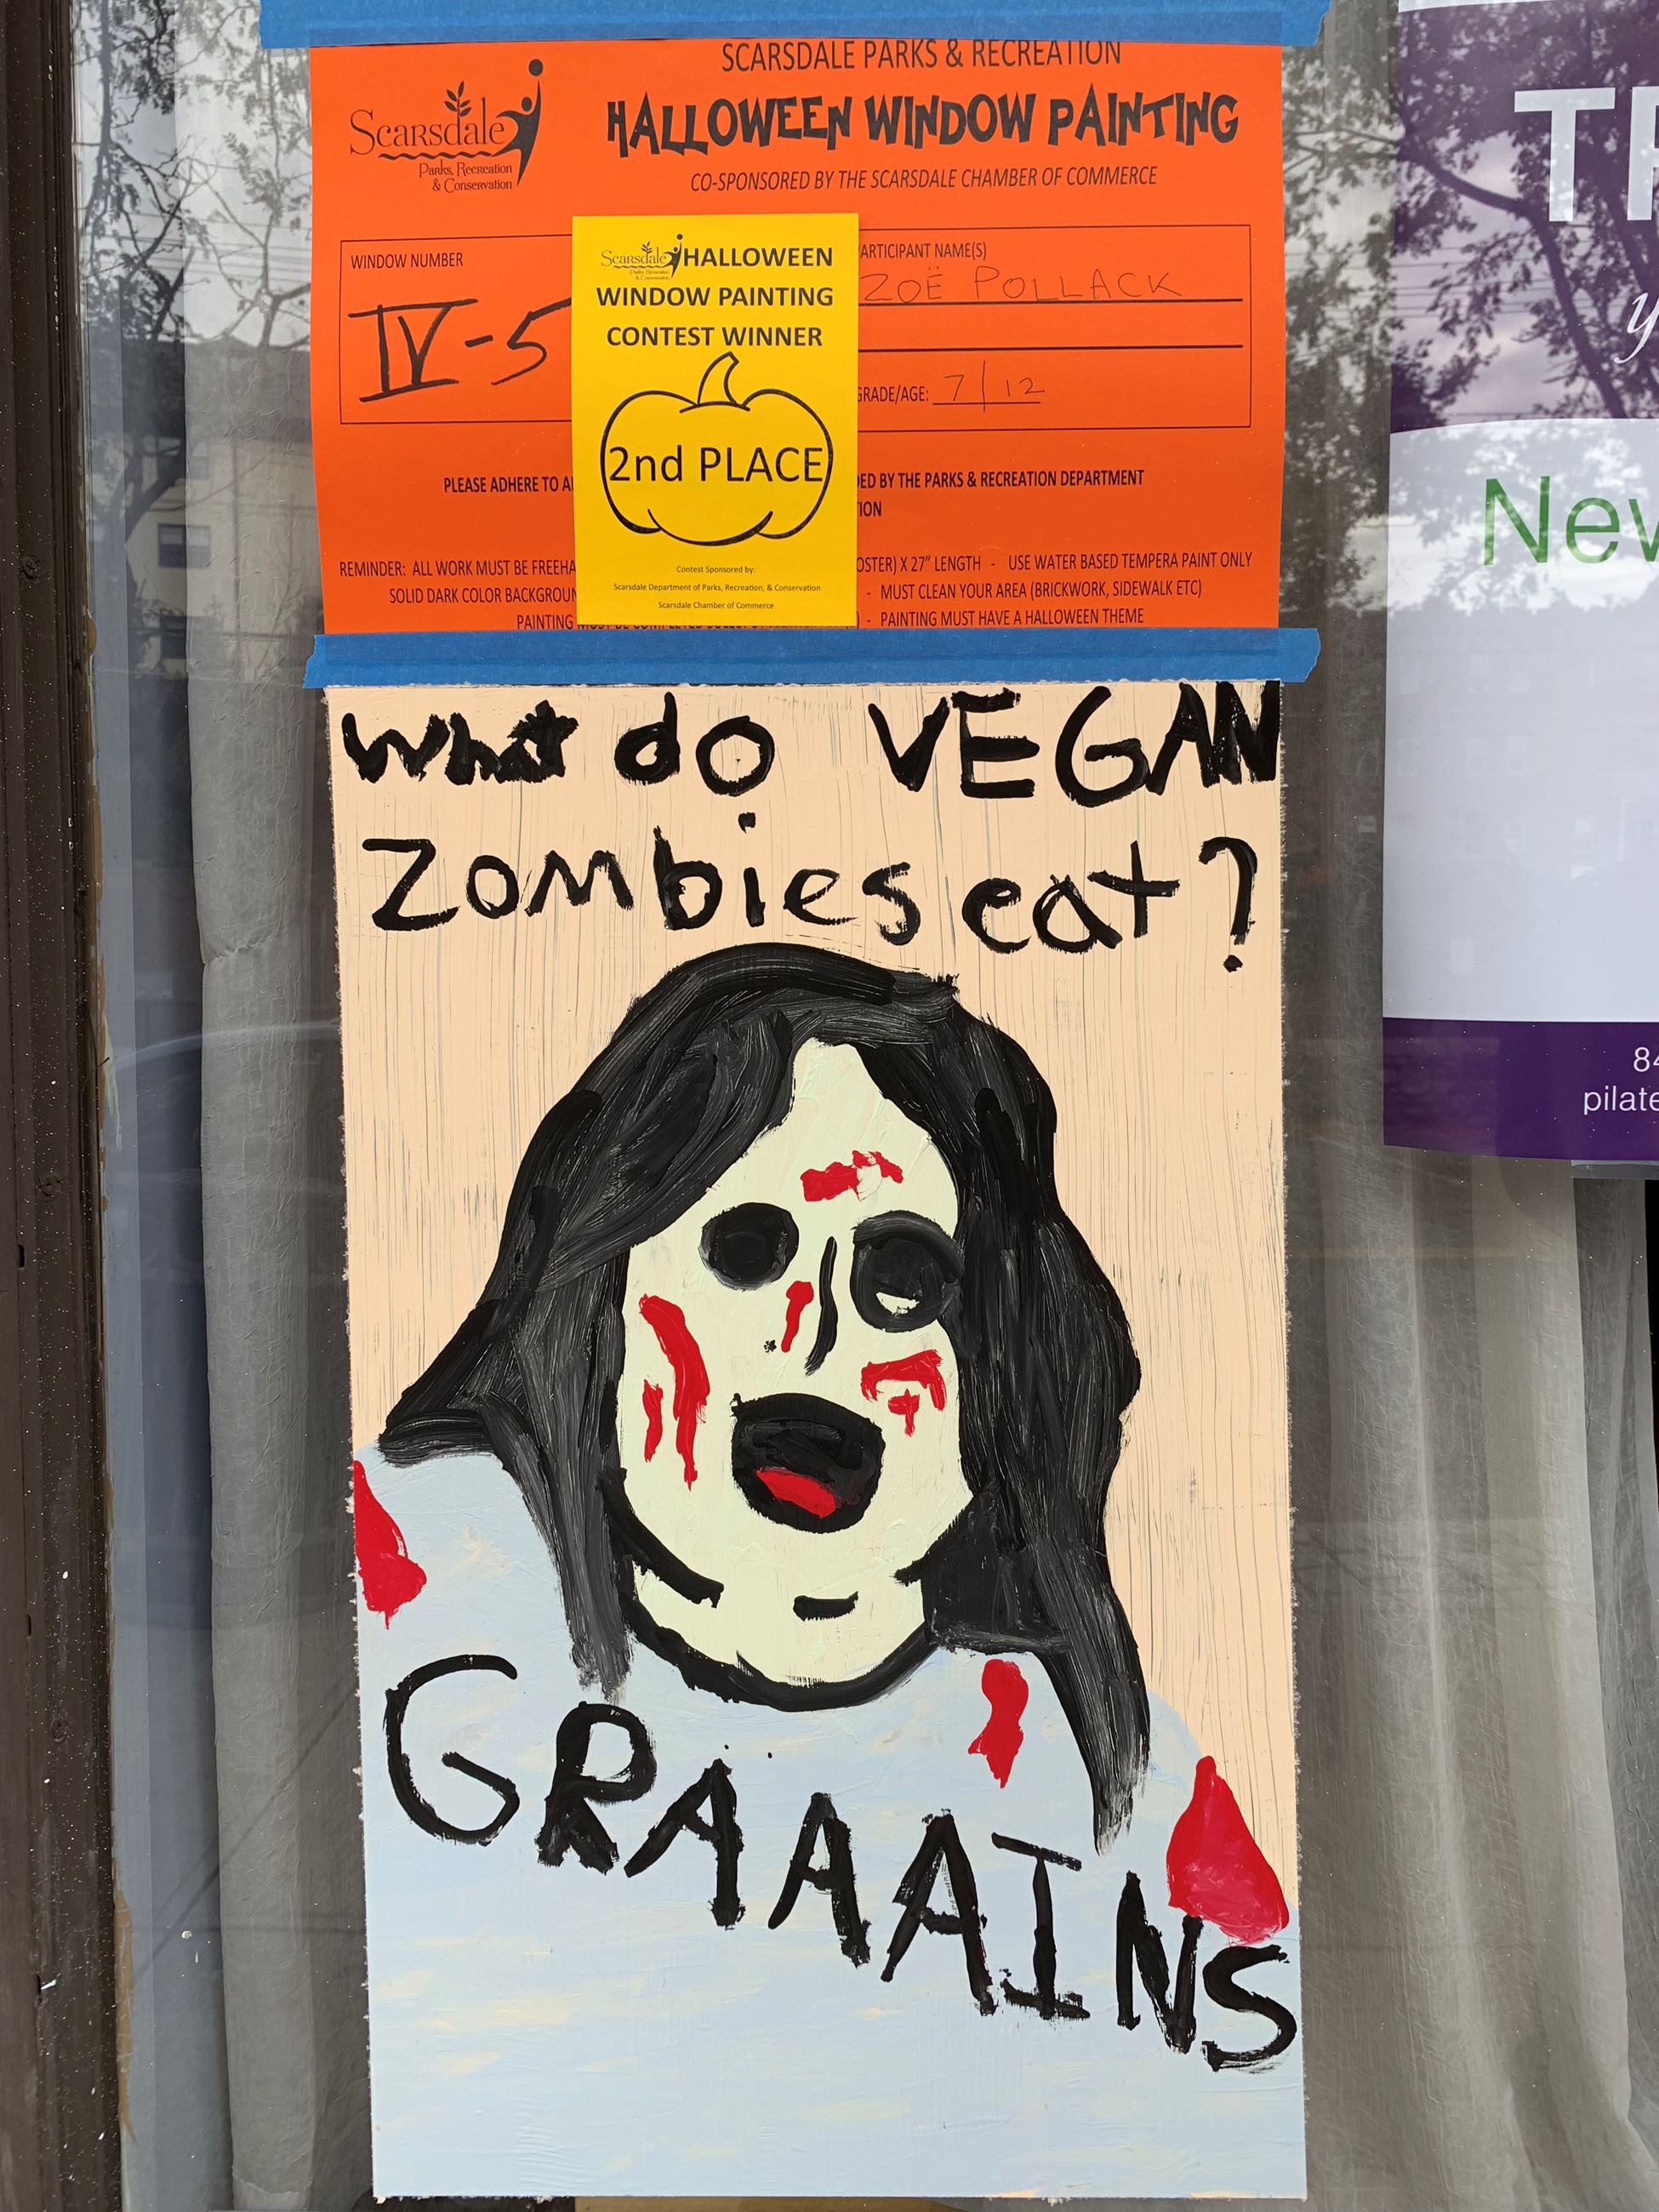 SCARSDALE PARKS & RECREATION
Scarsdale
Parks, Recreation
& Conservation
HALLOWEEN WINDOW PAINTING
CO-SPONSORED BY THE SCARSDALE CHAMBER OF COMMERCE
WINDOW NUMBER
IV-5
ARTICIPANT NAME(S)
ZOË POLLACK
GRADE/AGE: 7/12
Scarsdale
HALLOWEEN
WINDOW PAINTING
CONTEST WINNER
2nd PLACE
Contest Sponsored by:
Scarsdale Department of Parks, Recreation, & Conservation
Scarsdale Chamber of Commerce
PLEASE ADHERE TO A
ED BY THE PARKS & RECREATION DEPARTMENT
ION
REMINDER: ALL WORK MUST BE FREEHA
OSTER) X 27" LENGTH - USE WATER BASED TEMPERA PAINT ONLY
SOLID DARK COLOR BACKGROUN
- MUST CLEAN YOUR AREA (BRICKWORK, SIDEWALK ETC)
PAINTING
) - PAINTING MUST HAVE A HALLOWEEN THEME
What do VEGAN
Zombies eat?
GRAAAINS
T
y
New
84
pilate